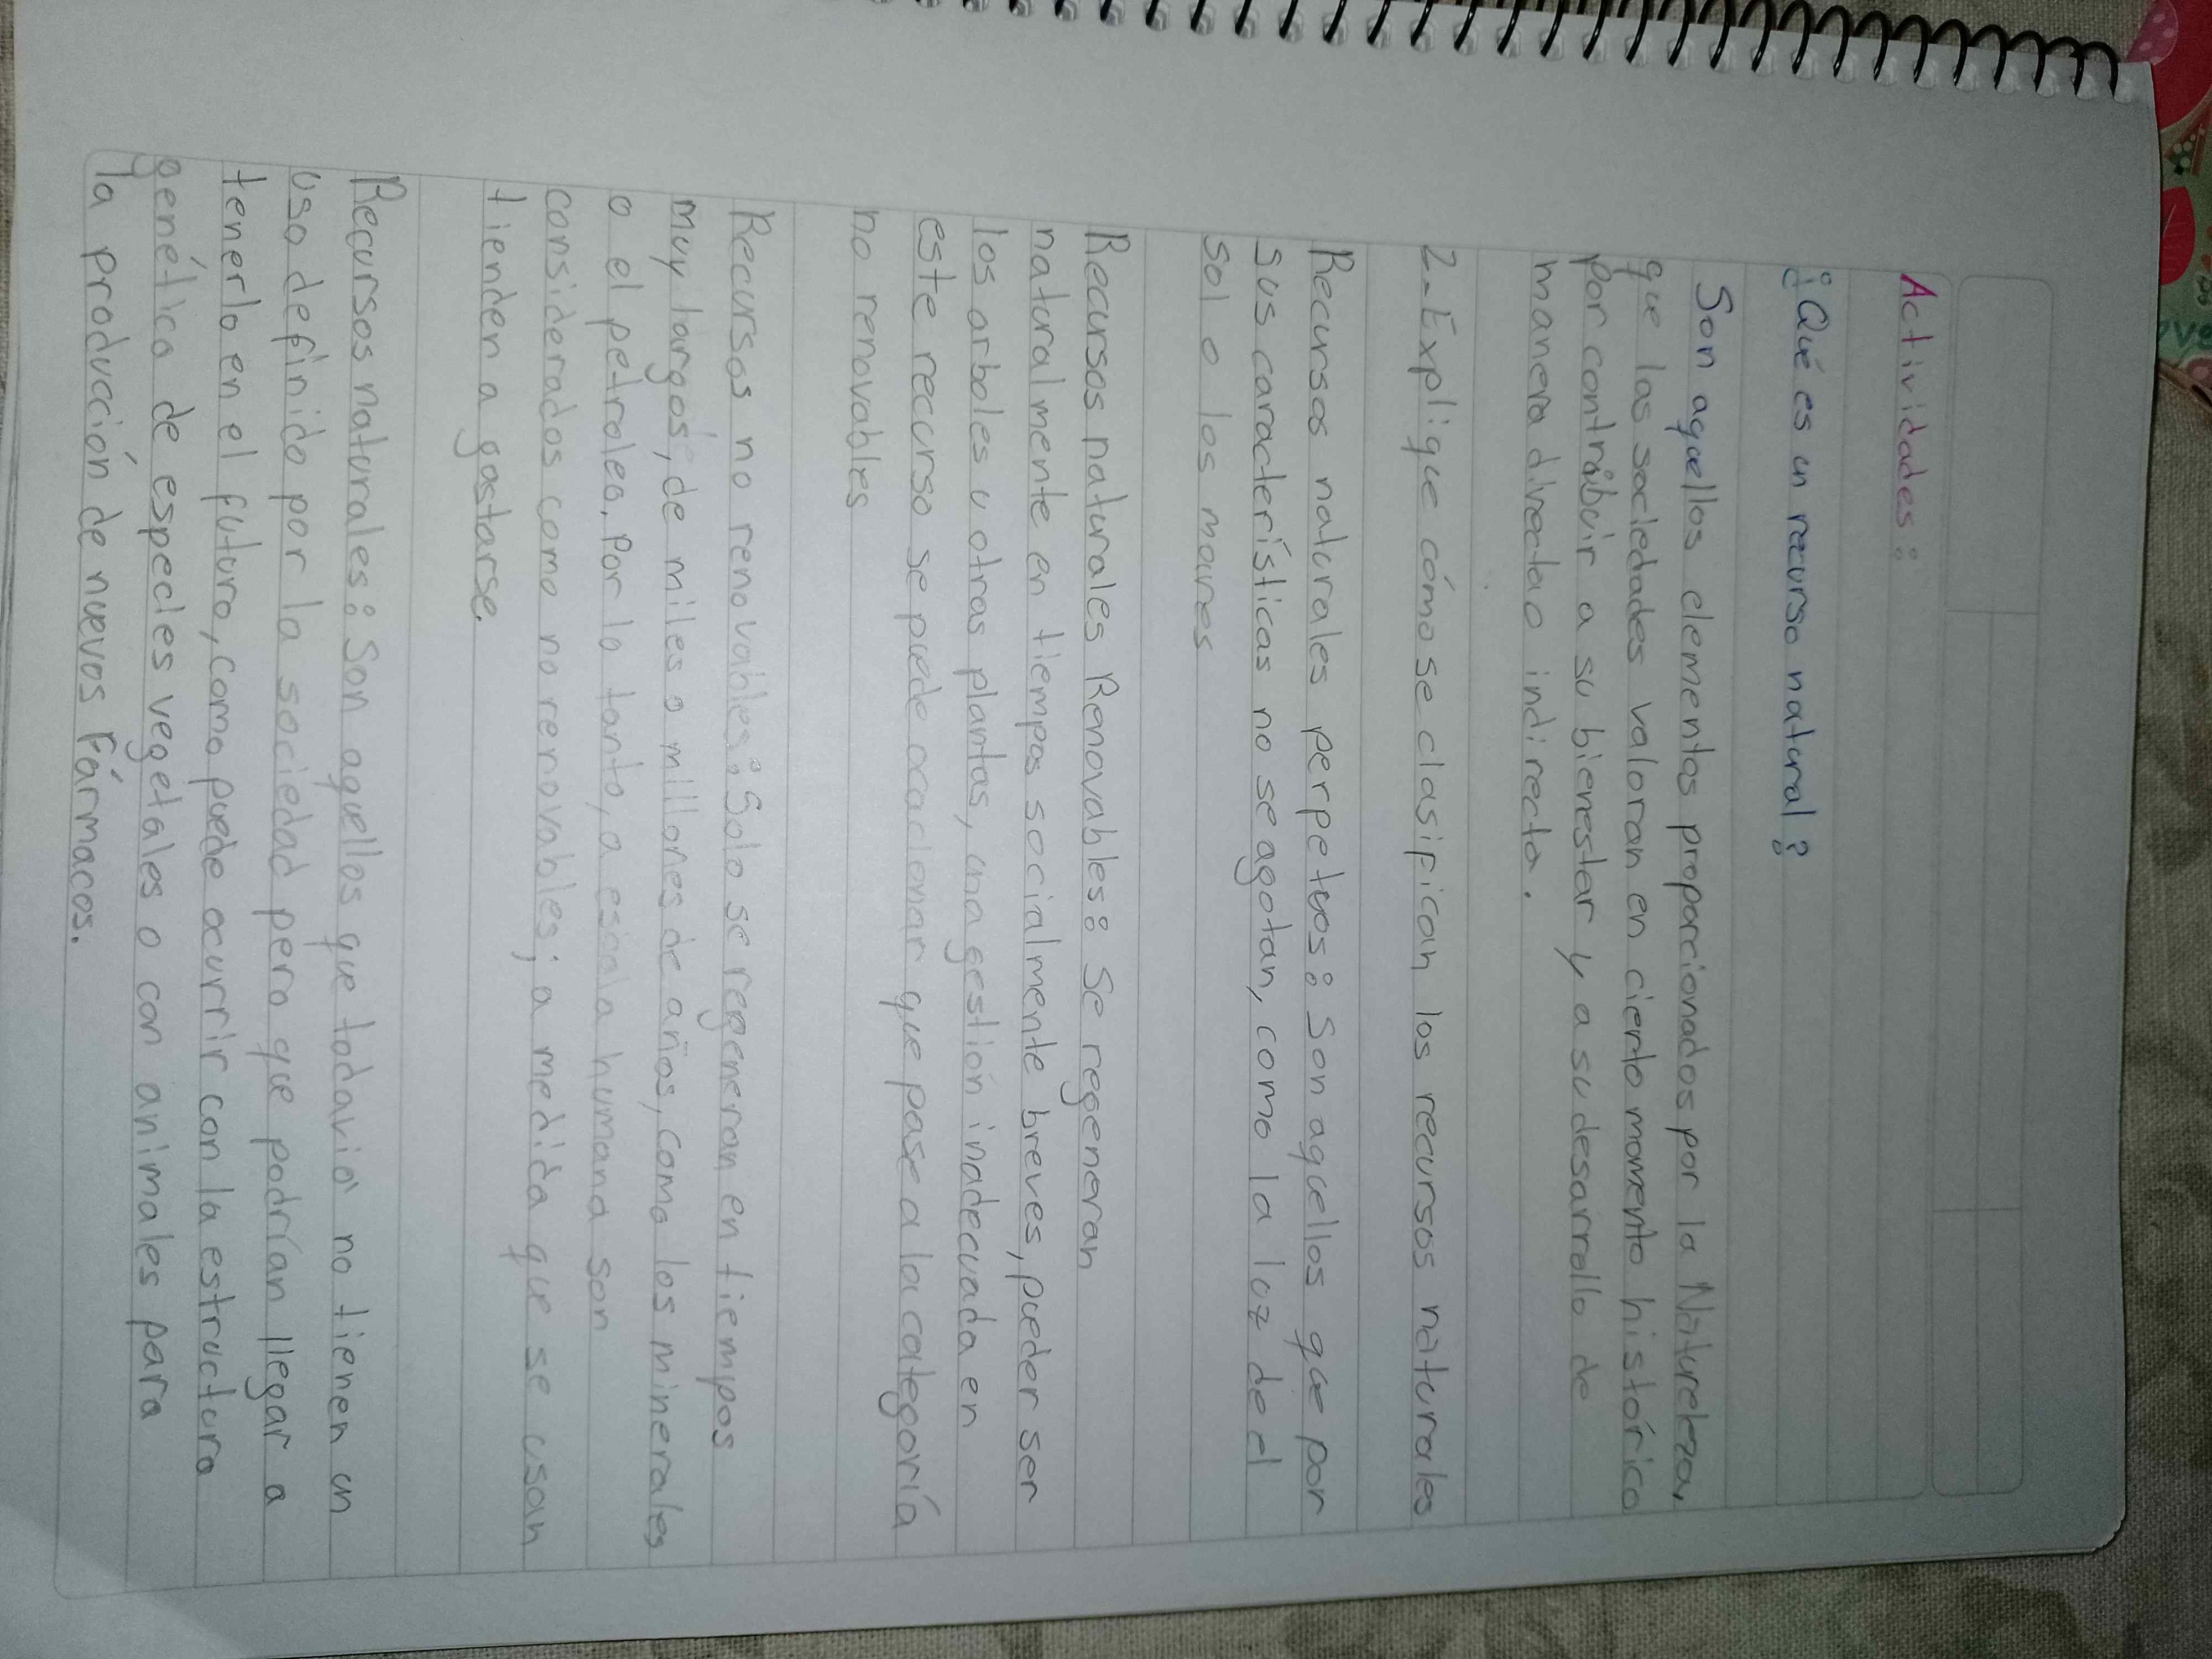 Actividades:
¿Qué es un recurso natural?
Son aquellos elementos proporcionados por la Naturaleza,
que las sociedades valoran en cierto momento histórico
por contribuir a su bienestar y a su desarrollo de
manera directa o indirecta.
2-Explique cómo se clasifican los recursos naturales
Recursos naturales perpetuos: Son aquellos que por
sus características no se agotan, como la luz de el
sol o los mares
Recursos naturales Renovables: Se regeneran
naturalmente en tiempos socialmente breves, pueder ser
los arboles u otras plantas, una gestión inadecuada en
este recurso se puede oracionar que pase a la categoría
no renovables
Recursos no renovables: Solo se regeneran en tiempos
muy largos, de miles o millones de años, como los minerales
o el petroleo. Por lo tanto, a escala humana son
considerados como no renovables; a medida que se usan
tienden a gastarse.
Recursos naturales: Son aquellos que todavía no tienen un
uso definido por la sociedad pero que podrían llegar a
tenerlo en el futuro, como puede ocurrir con la estructura
genética de especies vegetales o con animales para
la producción de nuevos Fármacos.